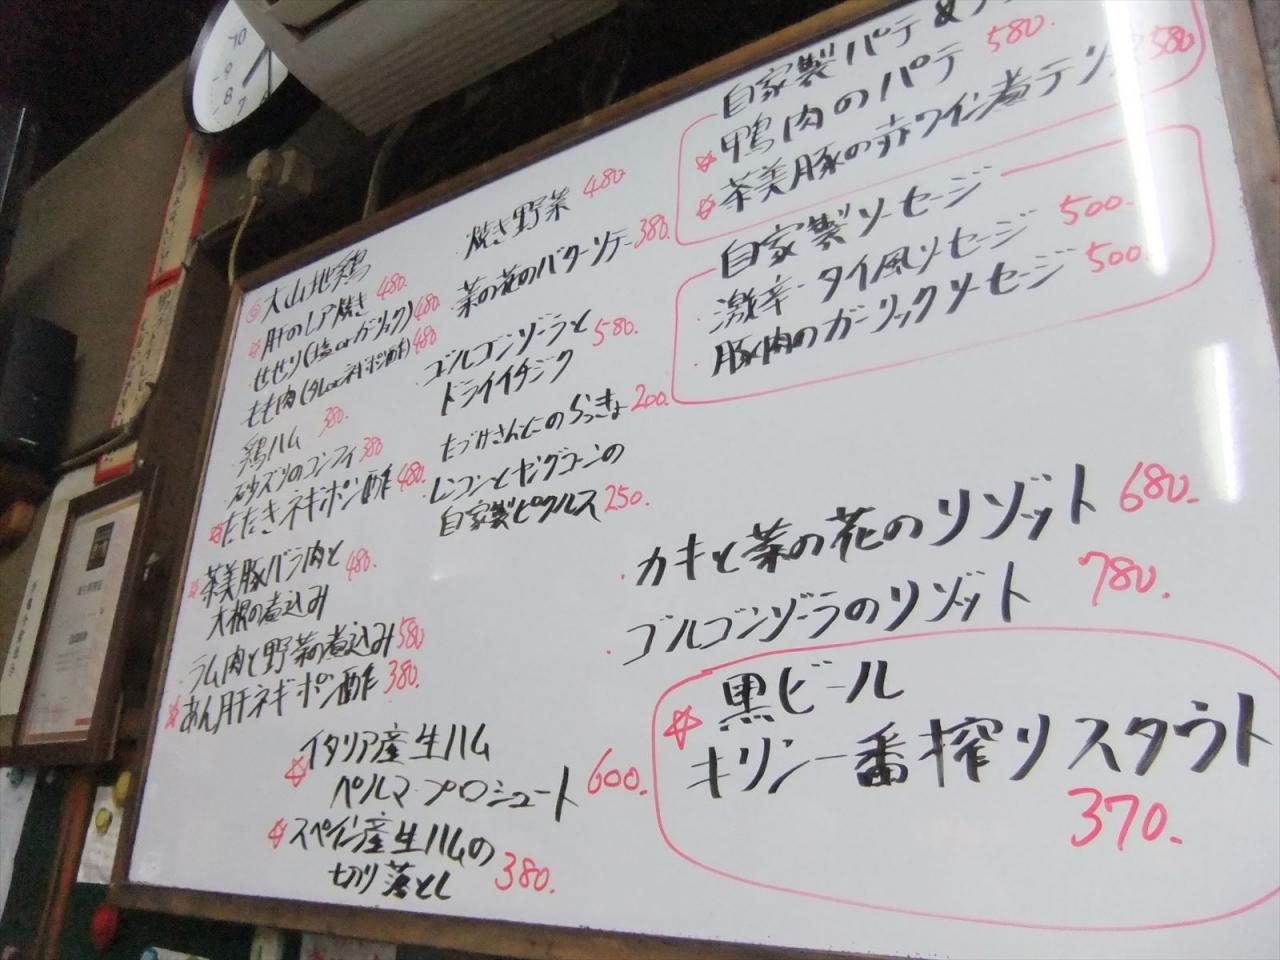 10
9
8
7
大山地鶏
肝のレア焼き 480
せせり(塩orガーリック) 480
もも肉(タレorネギポン酢) 480
鶏ハム 380.
砂ズリのコンフィ 380
たたきネギポン酢 480.
茶美豚バラ肉と 480.
大根の煮込み
ラム肉と野菜の煮込み 580
あん肝ネギポン酢 380.
イタリア産生ハム
ペルマ・プロシュート 600.
スペイン産生ハムの
切り落とし 380.
焼き野菜 480
菜の花のバターソテー 380.
ゴルゴンゾーラと 580.
ドライイチジク
もづけさんとこのらっきょ 200.
レンコンとヤングコーンの
自家製ピクルス 250.
自家製パテ
鴨肉のパテ 580.
茶美豚の赤ワイン煮テリーヌ 580
自家製ソーセージ
激辛・タイ風ソーセージ 500.
豚肉のガーリックソーセージ 500.
カキと菜の花のリゾット 680.
ゴルゴンゾーラのリゾット 780.
黒ビール
キリン一番搾りスタウト
370.